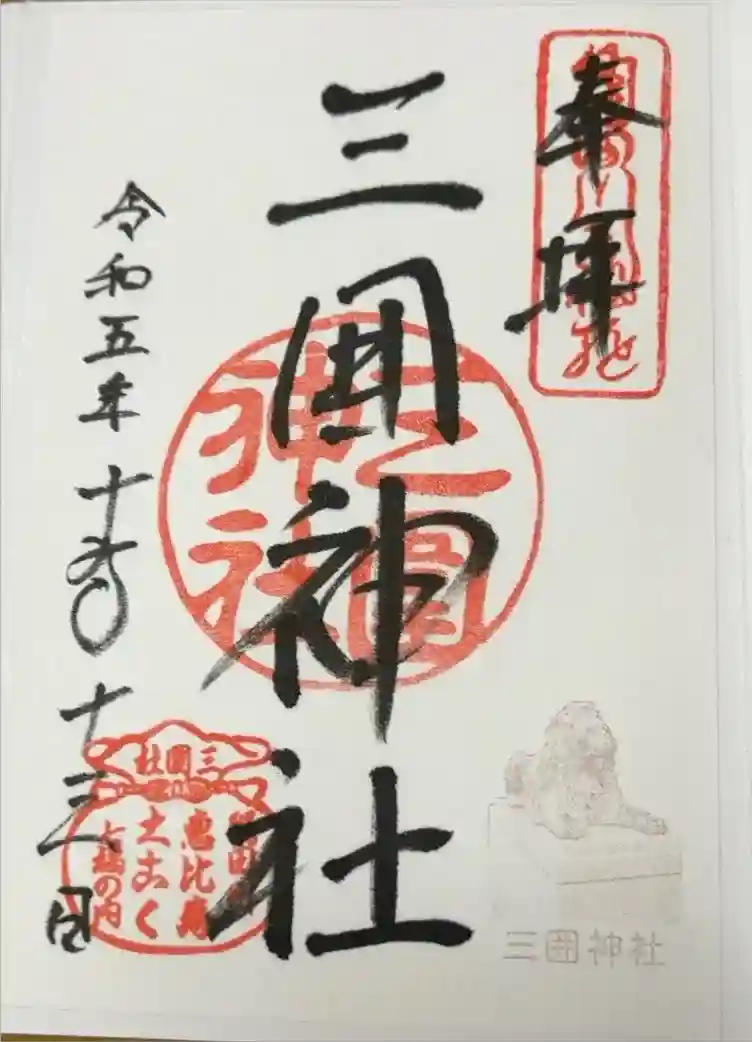 奉拝
三囲神社
三圍神社
令和五年十月十三日
三圍社
恵比寿
大こく
七福の内
三囲神社